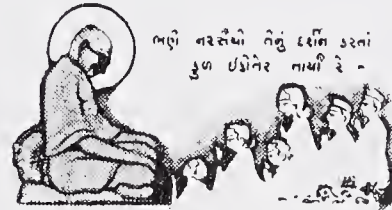 ભણે નરસૈંયો તેનું દર્શન કરતાં
કુળ ઇકોતેર તાર્યાં રે -